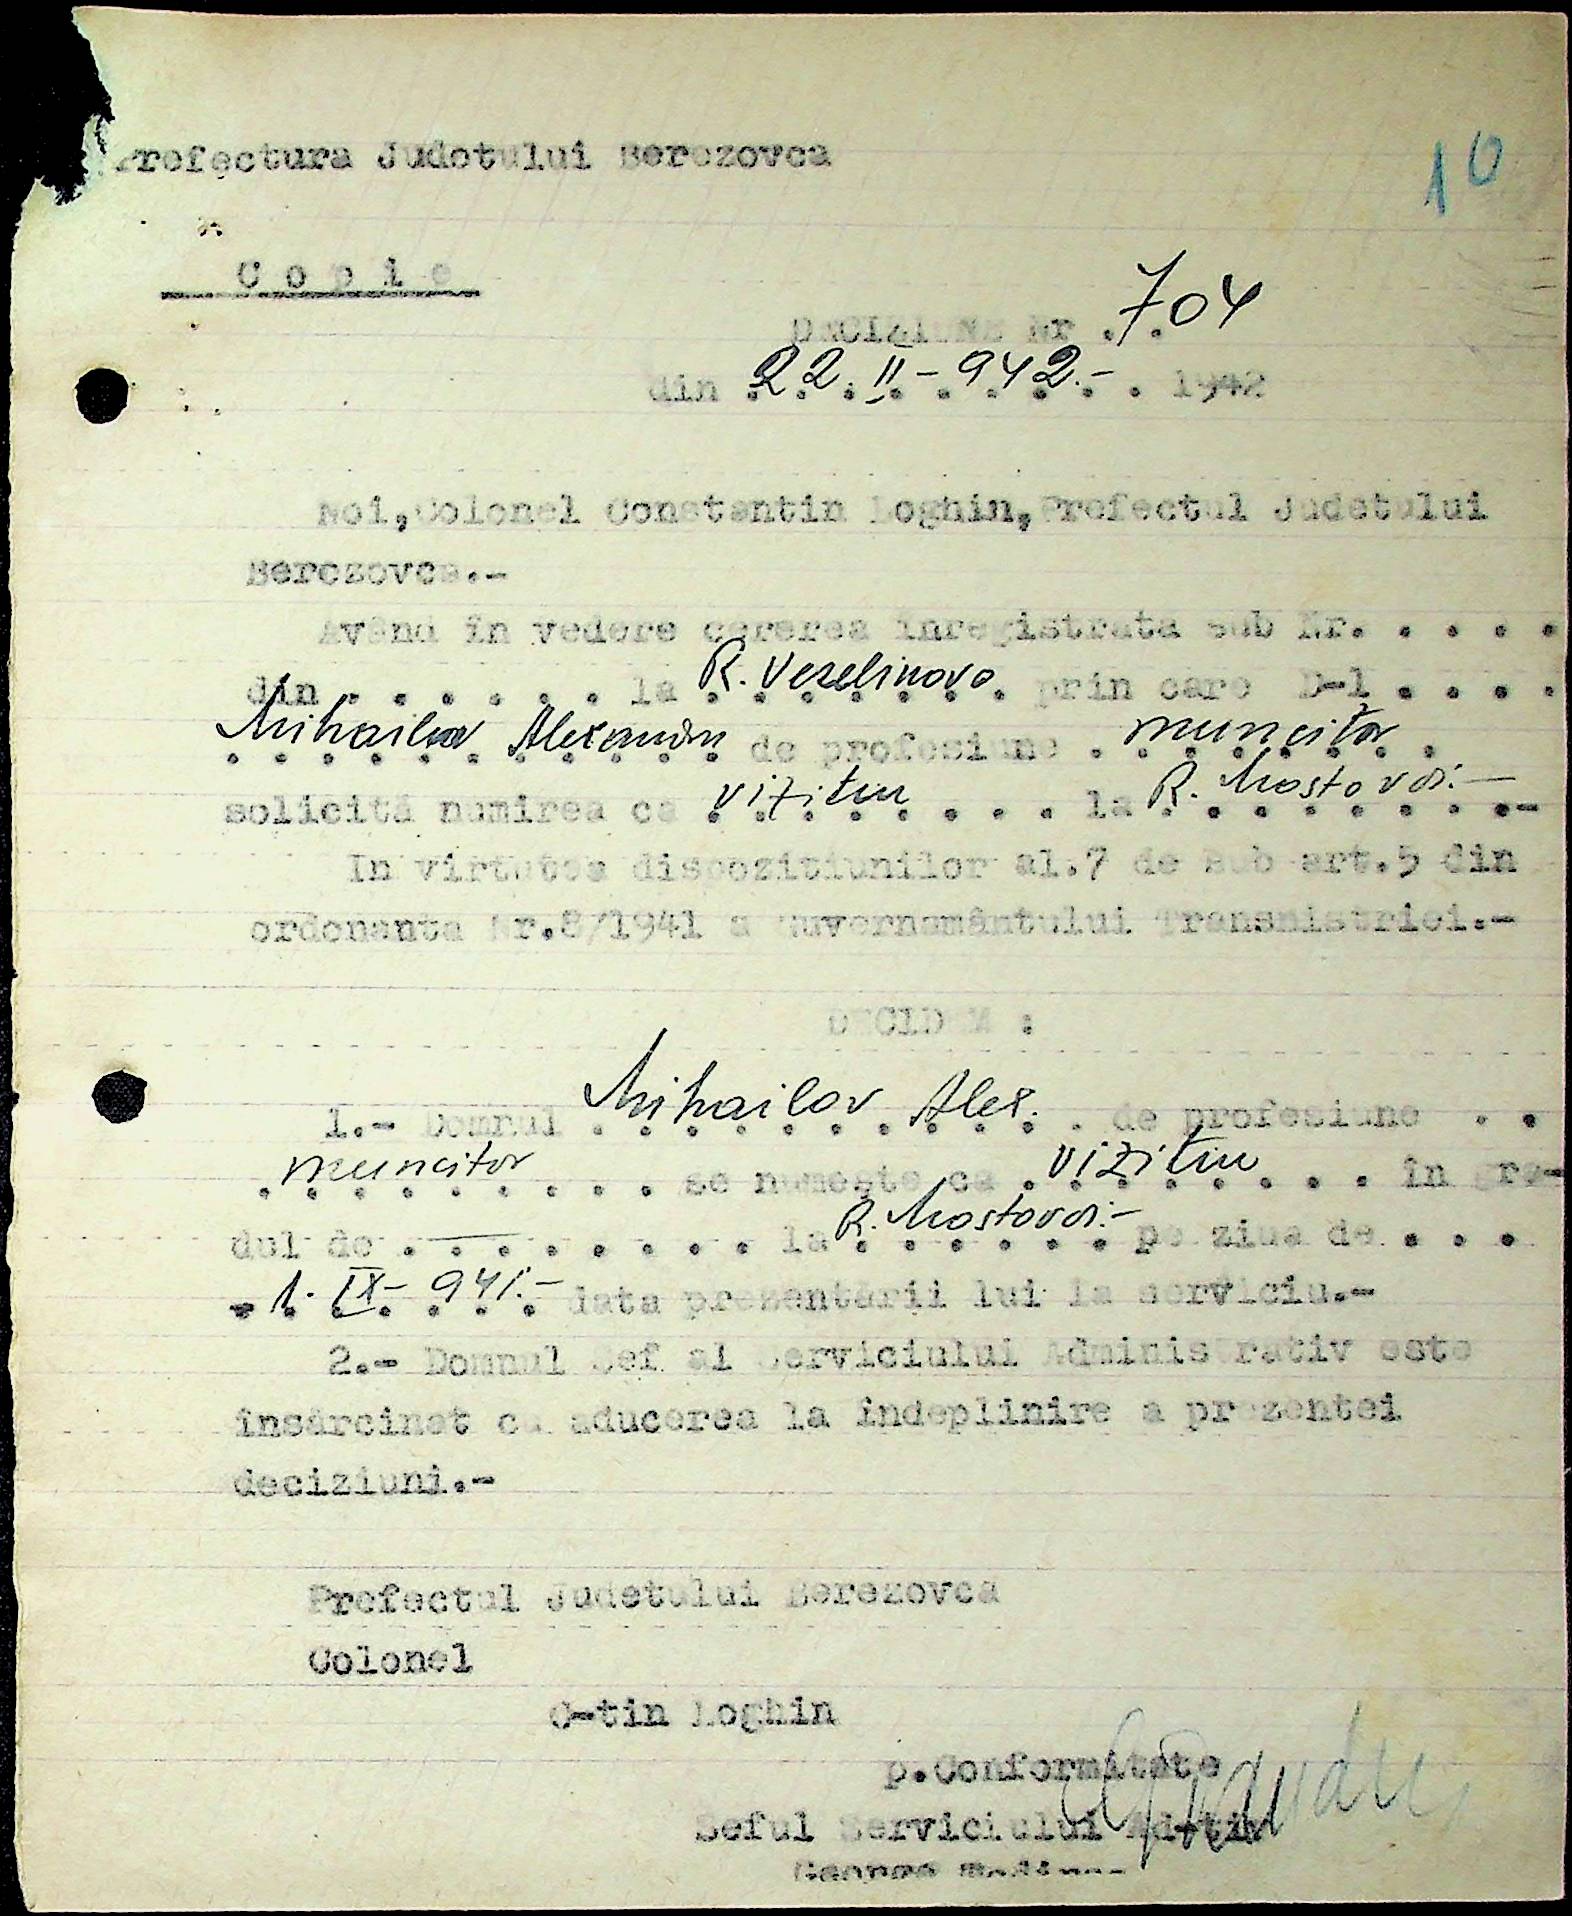 Prefectura Judetului Berezovca
10
C o p i e
DECIZIUNE Nr . 704 .
din 22. II - 942.- . 1942
Noi, Colonel Constantin Loghin, Prefectul Judetului
Berezovca.-
Având în vedere cererea înregistrata sub Nr. . . . .
din . . . . . . la R. Veselinovo . prin care D-l . . . .
Mihailov Alexandru de profesiune . muncitor .
solicită numirea ca vizitiu . . . la R. Mostovoi.-
In virtutea dispozitiunilor al.7 de sub art.5 din
ordonanta Nr.8/1941 a Guvernamântului Transnistriei.-
DECIDEM :
1.- Domnul . Mihailov Alex. . de profesiune . .
muncitor . . . se numește ca . vizitiu . . . în gra-
dul de . . . . . . . . la R. Mostovoi.- pe ziua de . . .
1. IX - 941.- data presentării lui la serviciu.-
2.- Domnul Sef al Serviciului Administrativ este
însărcinat cu aducerea la îndeplinire a prezentei
deciziuni.-
Prefectul Judetului Berezovca
Colonel
C-tin Loghin
p.Conformitate
Seful Serviciului Ad-tiv